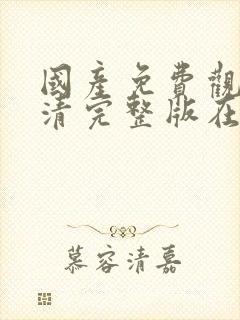 國產免費觀
清完整版在
慕容清嘉